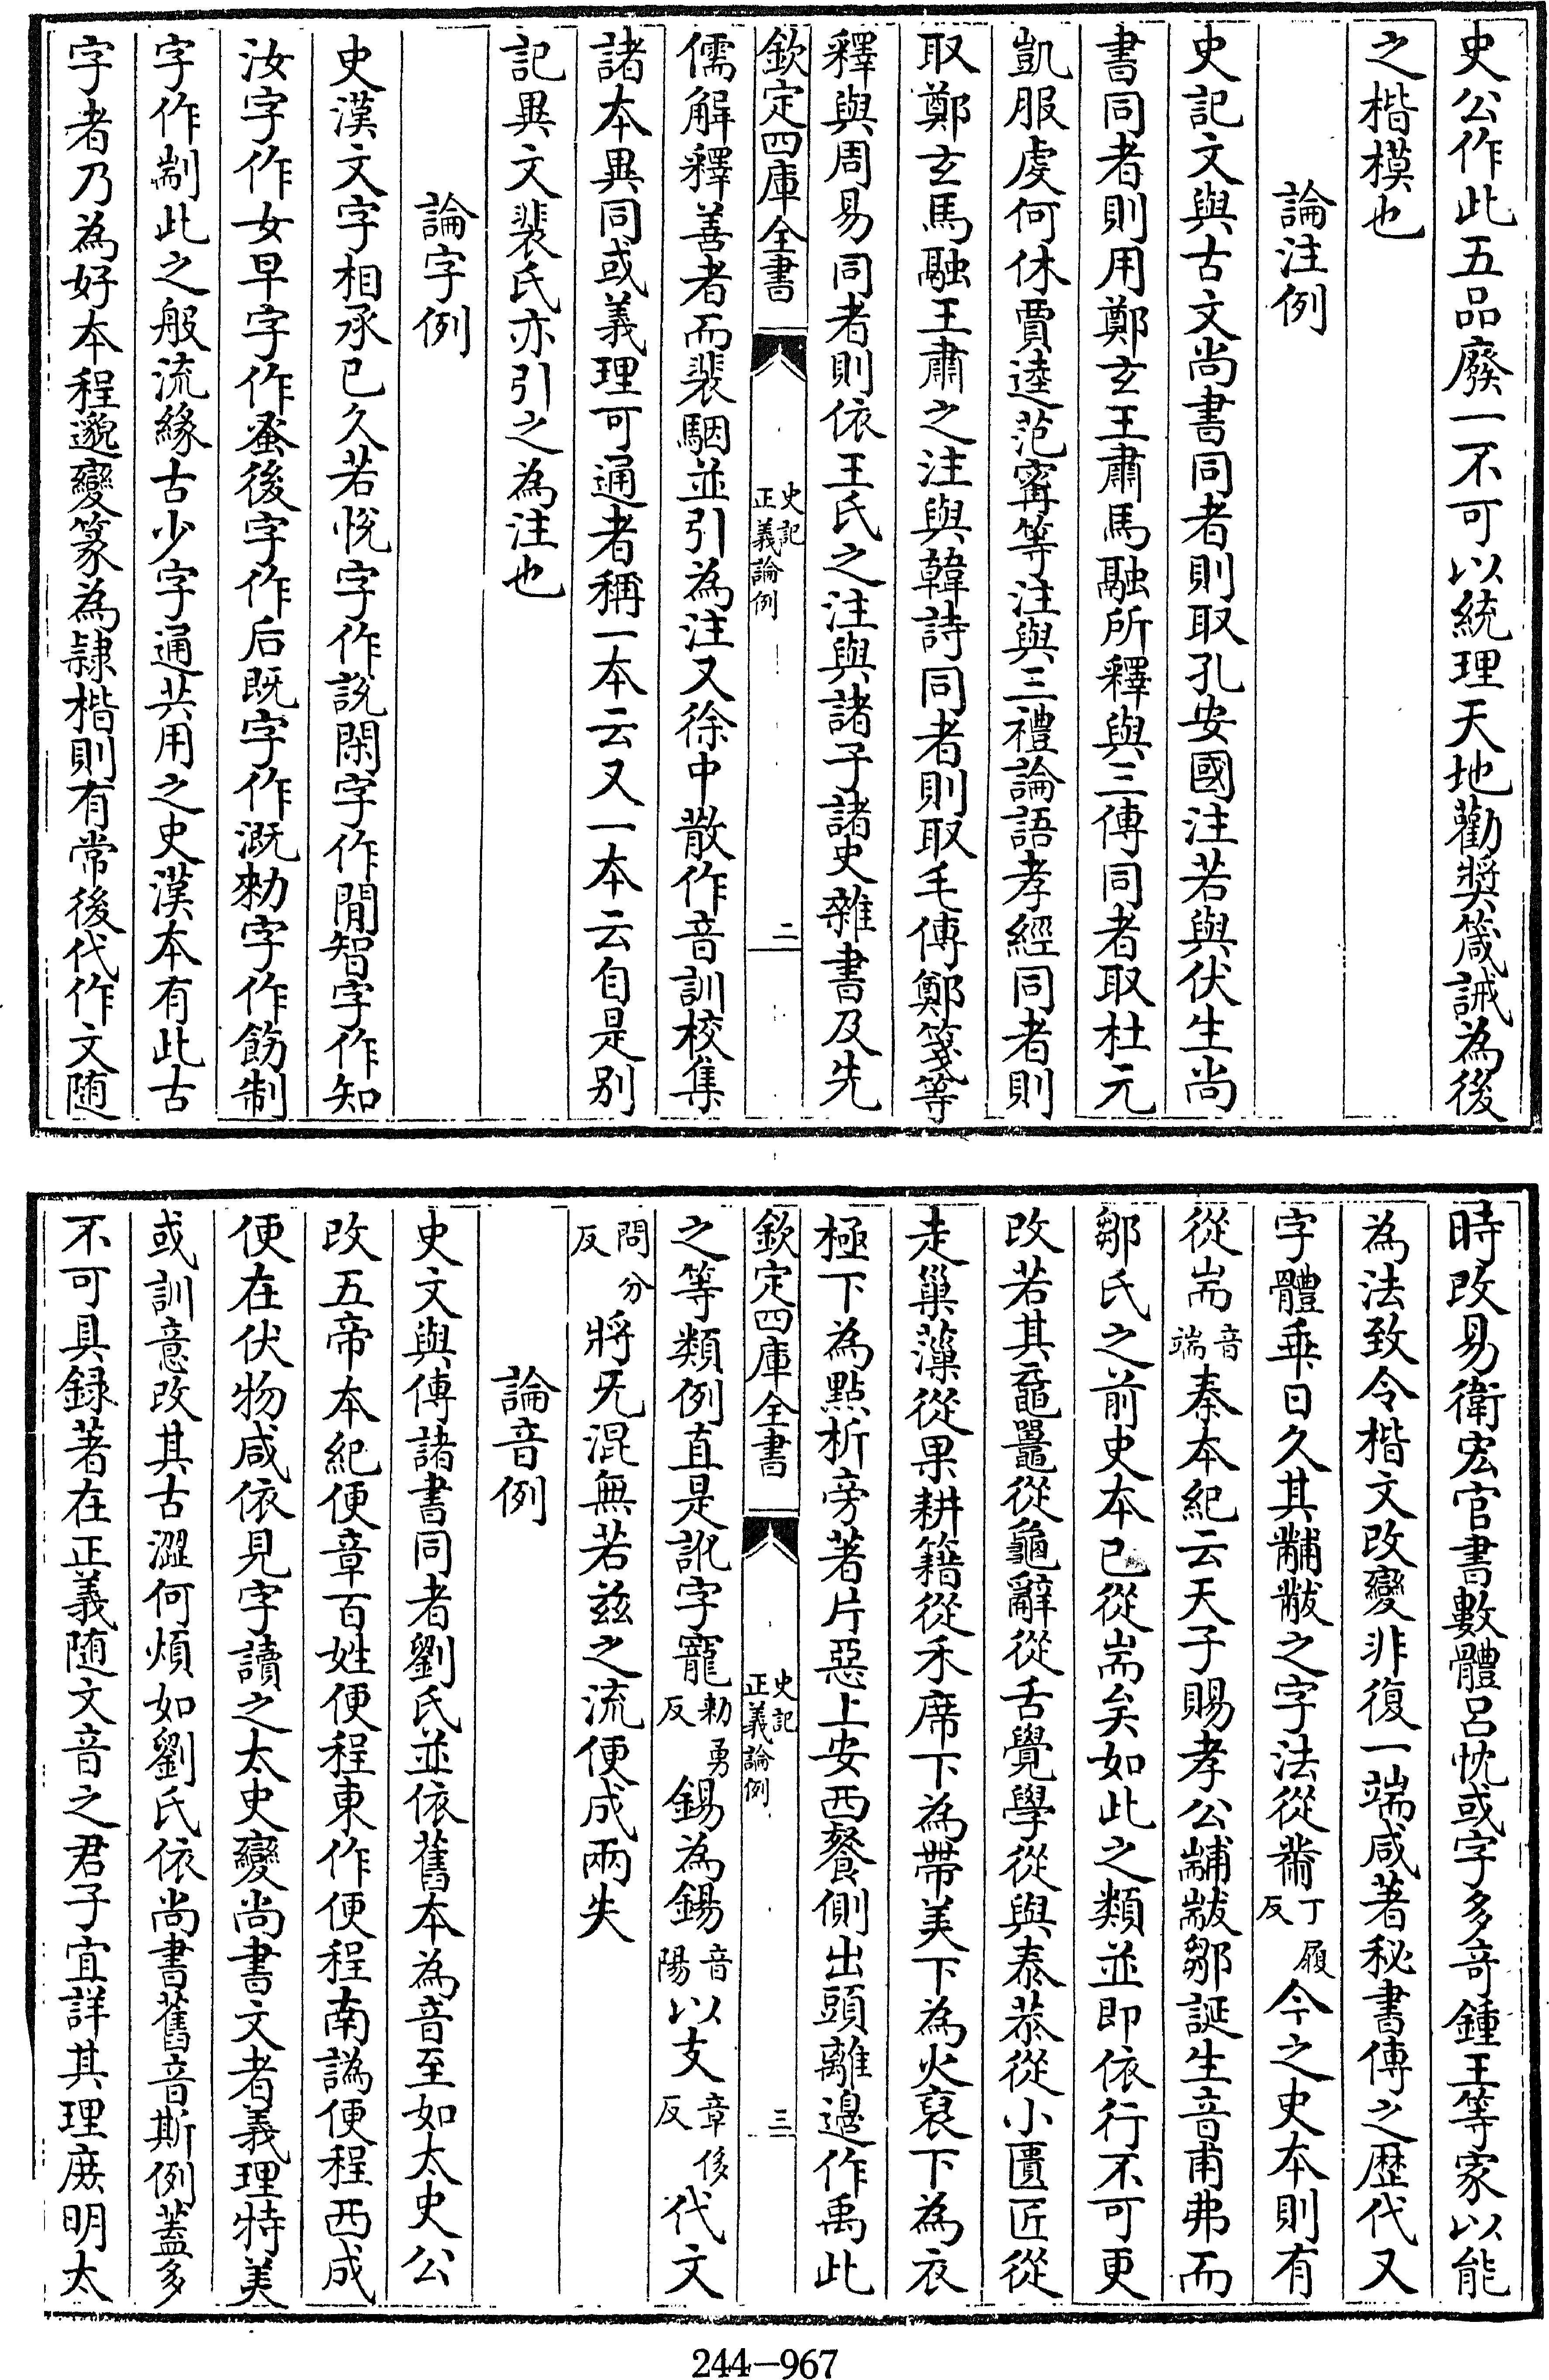 史公作此五品廢一不可以統理天地勸奬箴誡為後
之楷模也
論注例
史記文與古文尚書同者則取孔安國注若與伏生尚
書同者則用鄭玄王肅馬融所釋與三傳同者取杜元
凱服虔何休賈逵范甯等注與三禮論語孝經同者則
取鄭玄馬融王肅之注與韓詩同者則取毛傳鄭箋等
釋與周易同者則依王氏之注與諸子諸史雜書及先
欽定四庫全書 史記正義論例 二
儒解釋善者而裴駰並引為注又徐中散作音訓校集
諸本異同或義理可通者稱一本云又一本云自是别
記異文裴氏亦引之為注也
論字例
史漢文字相承已久若悅字作說閑字作閒智字作知
汝字作女早字作蚤後字作后既字作溉勑字作飭制
字作剬此之般流緣古少字通共用之史漢本有此古
字者乃為好本程邈變篆為隷楷則有常後代作文随
時改易衛宏官書數體呂忱或字多竒鍾王等家以能
為法致令楷文改變非復一端咸著秘書傳之歴代又
字體乖日久其黼黻之字法從黹丁履反今之史本則有
從耑音端秦本紀云天子賜孝公黼黻鄒誕生音甫弗而
鄒氏之前史本已從耑矣如此之類並即依行不可更
改若其黿鼉從龜辭從舌覺學從與泰恭從小匱匠從
走巢藻從果耕籍從禾席下為帶美下為火裒下為衣
極下為點析旁著片惡上安西餐側出頭離邊作禹此
欽定四庫全書 史記正義論例 三
之等類例直是訛字寵勑勇反錫為鍚音陽以支章侈反代文
問分反將旡混無若兹之流便成兩失
論音例
史文與傳諸書同者劉氏並依舊本為音至如太史公
改五帝本紀便章百姓便程東作便程南譌便程西成
便在伏物咸依見字讀之太史變尚書文者義理特美
或訓意改其古澀何煩如劉氏依尚書舊音斯例蓋多
不可具録著在正義随文音之君子宜詳其理庶明太
244-967